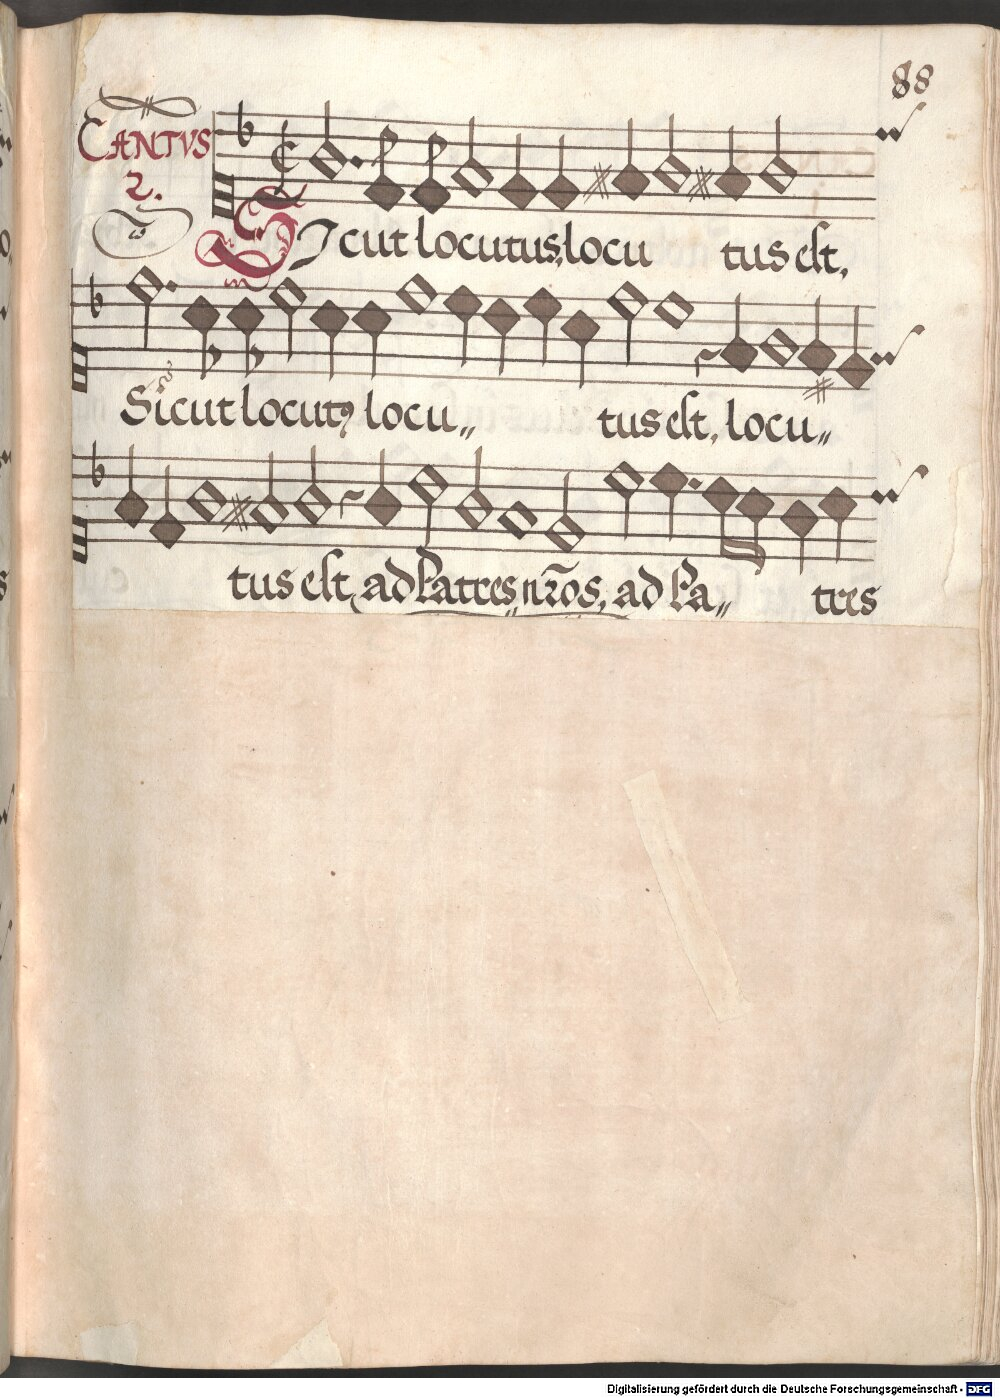 88
CANTVS
2.
SIcut locutus, locu tus est,
Sicut locutꝰ locu„ tus est, locu„
tus est, ad Patres nr̃os, ad Pa„ tres
Digitalisierung gefördert durch die Deutsche Forschungsgemeinschaft - DFG